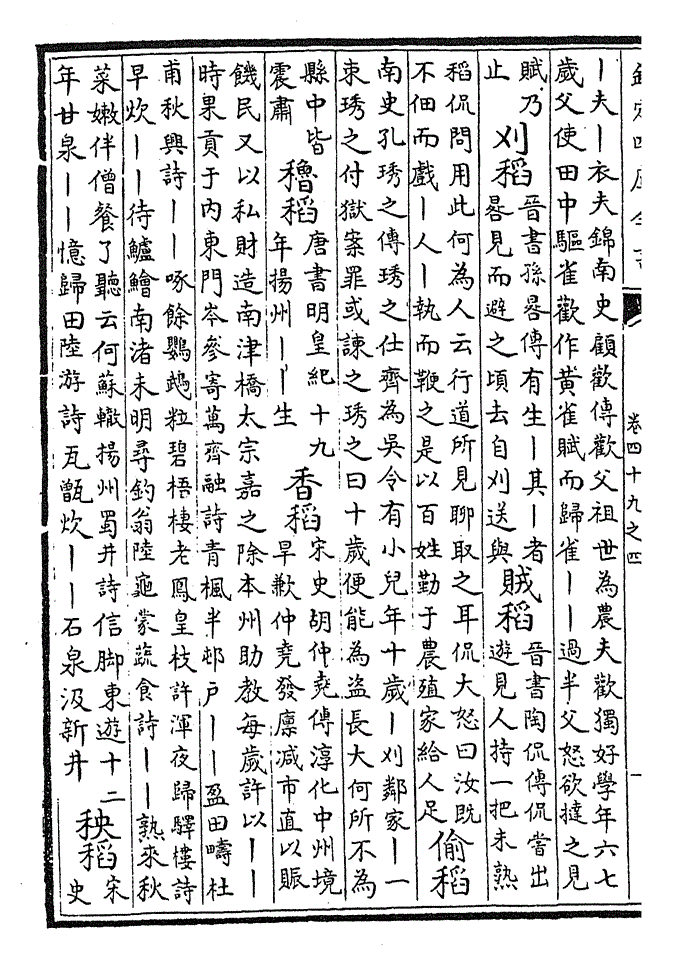 欽定四庫全書
卷四十九之四
丨夫丨衣夫錦南史顧歡傳歡父祖世為農夫歡獨好學年六七
歲父使田中驅雀歡作黄雀賦而歸雀丨丨過半父怒欲撻之見
賦乃
止
刈稻
晉書孫晷傳有生丨其丨者
晷見而避之頃去自刈送與
賊稻
晉書陶侃傳侃嘗出
遊見人持一把未熟
稻侃問用此何為人云行道所見聊取之耳侃大怒曰汝既
不佃而戲丨人丨執而鞭之是以百姓勤于農殖家給人足
偷稻
南史孔琇之傳琇之仕齊為吳令有小兒年十歲丨刈鄰家丨一
束琇之付獄案罪或諫之琇之曰十歲便能為盜長大何所不為
縣中皆
震肅
穭稻
唐書明皇紀十九
年揚州丨丨生
香稻
宋史胡仲堯傳淳化中州境
旱歉仲堯發廪減市直以賑
饑民又以私財造南津橋太宗嘉之除本州助教每歲許以丨丨
時果貢于内東門岑參寄萬齊融詩青楓半邨戶丨丨盈田疇杜
甫秋興詩丨丨啄餘鸚鵡粒碧梧棲老鳳皇枝許渾夜歸驛樓詩
早炊丨丨待鱸鱠南渚未明尋釣翁陸龜蒙蔬食詩丨丨熟來秋
菜嫩伴僧餐了聽云何蘇轍揚州蜀井詩信脚東遊十二
年甘泉丨丨憶歸田陸游詩瓦甑炊丨丨石泉汲新井
秧稻
宋
史